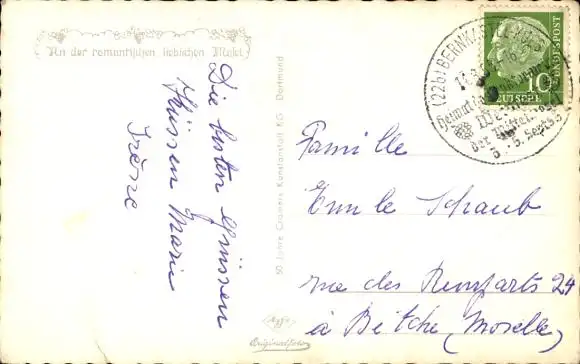 An der romantischen lieblichen Mosel
Die besten Grüssen
Küssen Marie
Irène
50 Jahre Cramers Kunstanstalt KG Dortmund
Agfa
Originalfoto
(22b) BERNKASTEL-KUES
der Mittel
5. Sept.
10
DEUTSCHE BUNDESPOST
Familie
Emile Schaub
rue des Remparts 24
à Bitche (Moselle)